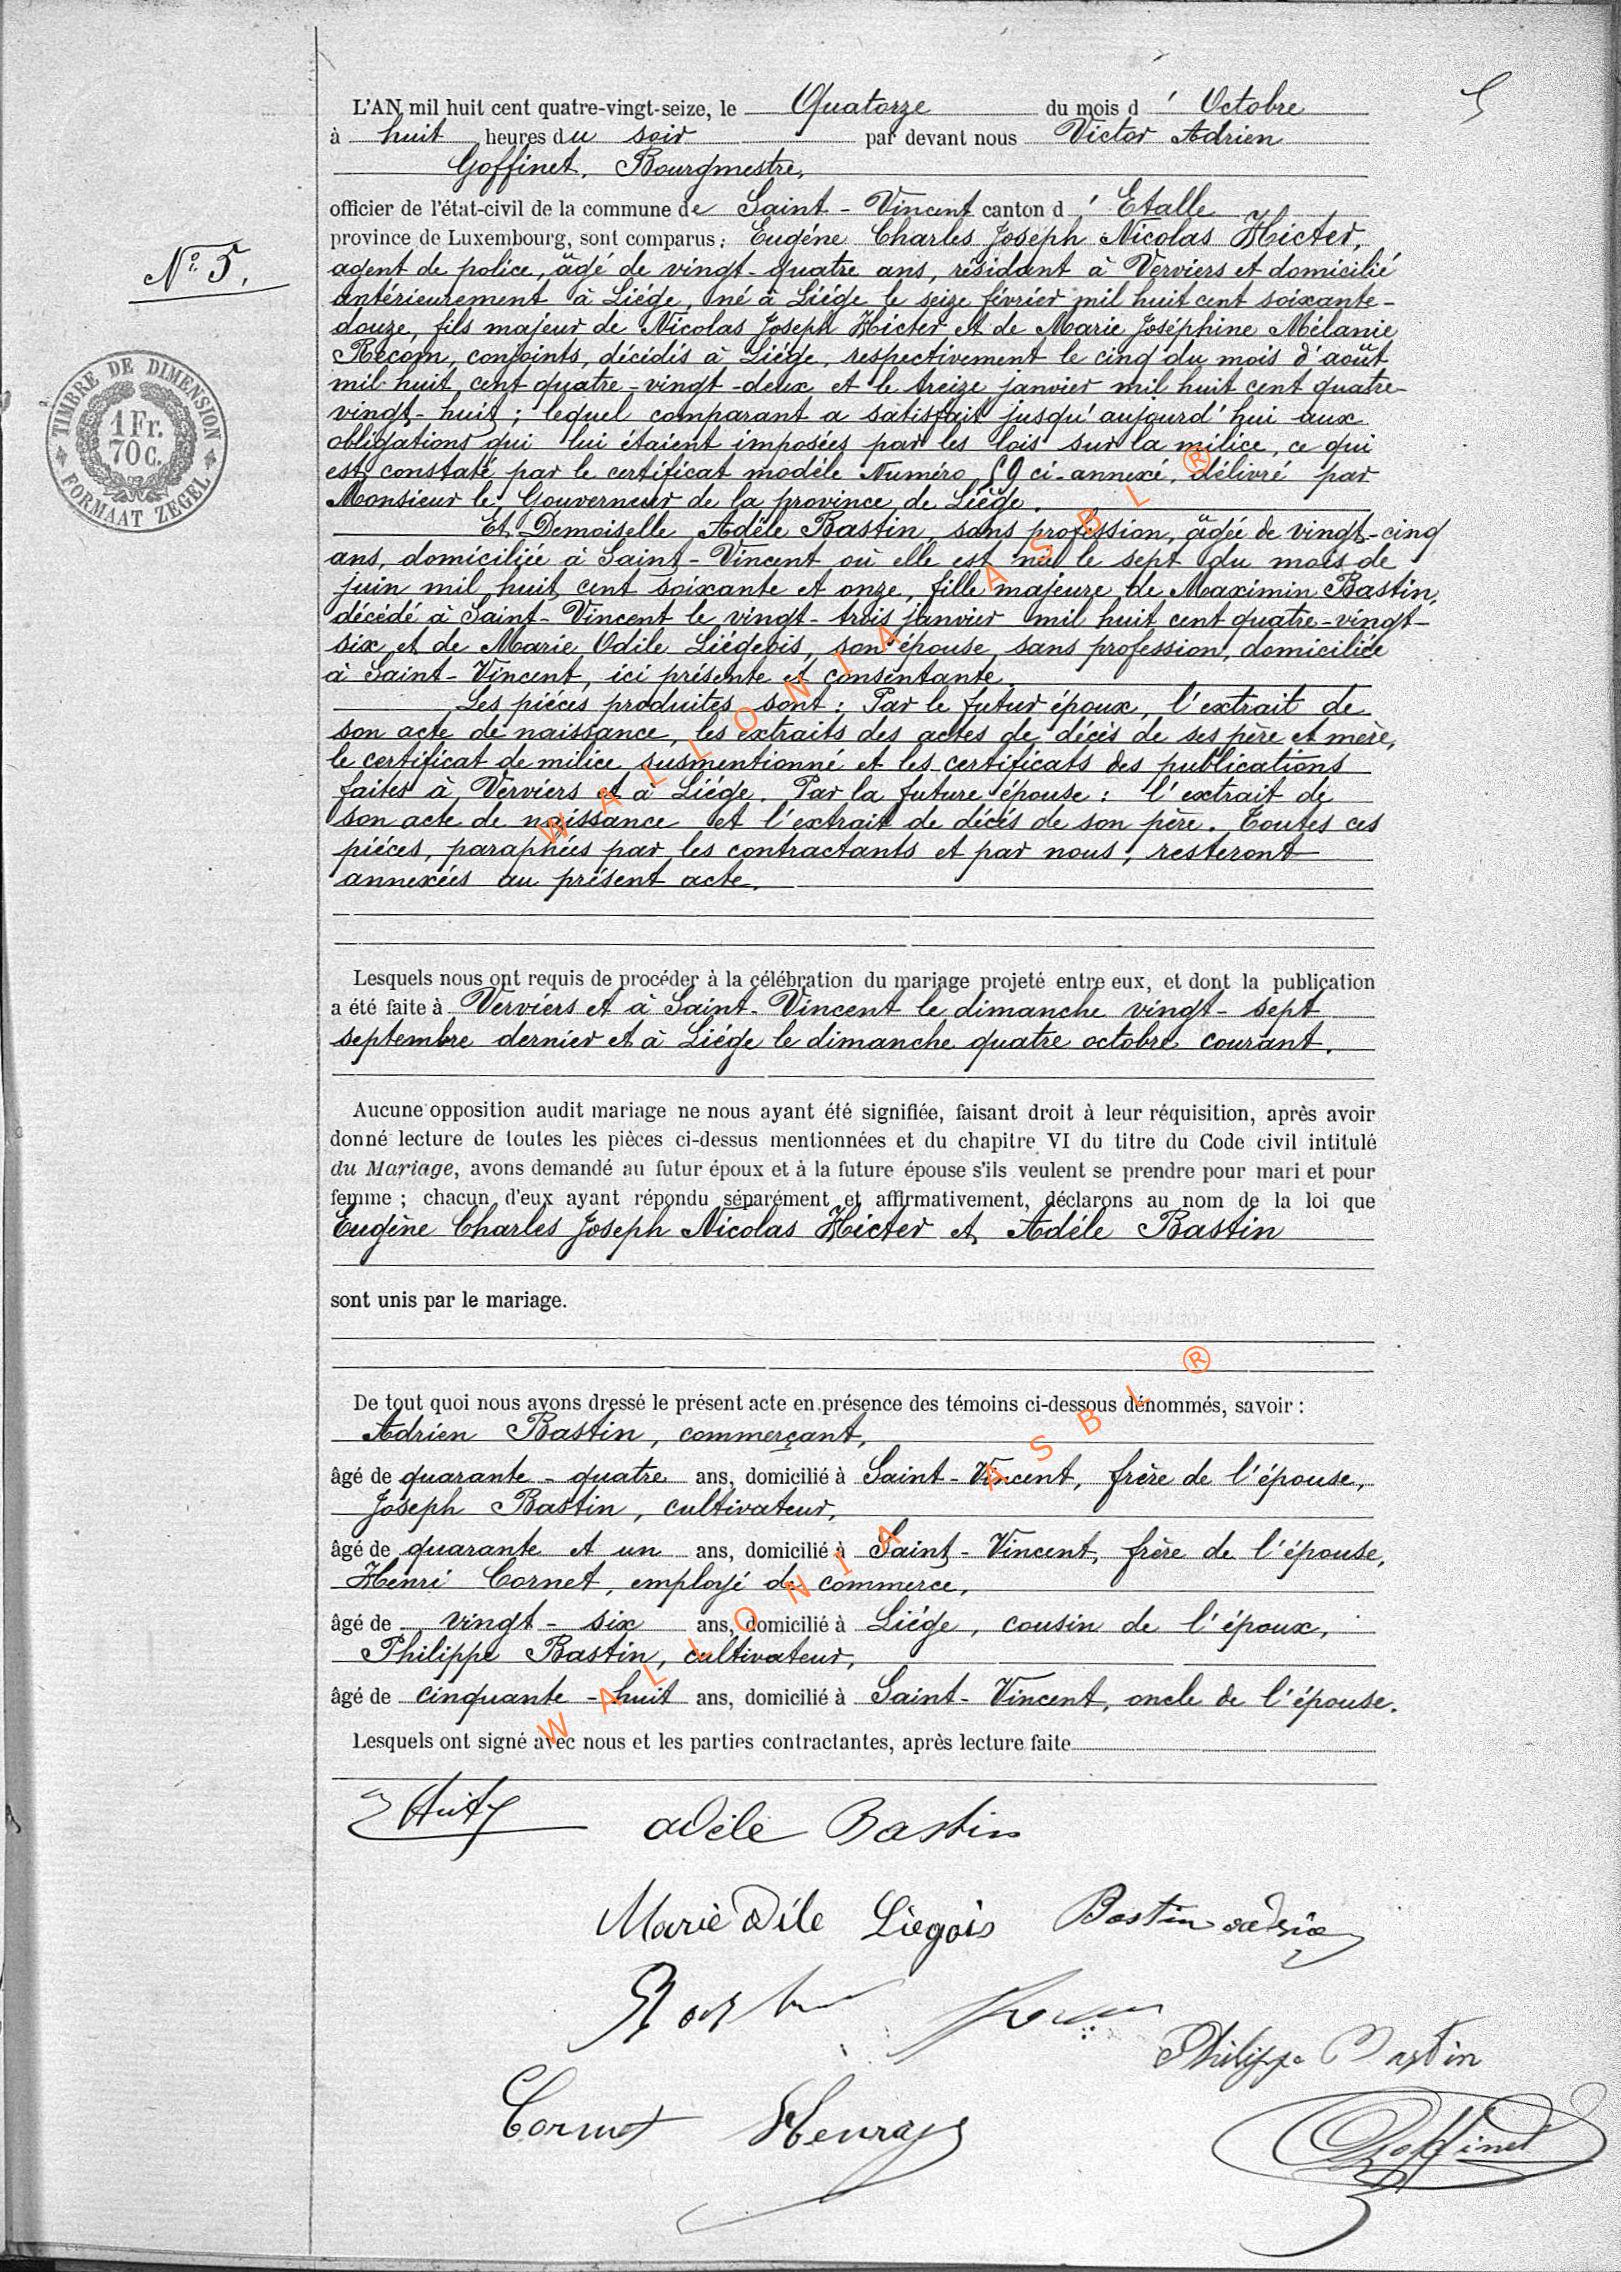 5
L'AN mil huit cent quatre-vingt-seize, le Quatorze du mois d' Octobre
à huit heures du soir par devant nous Victor Adrien
Goffinet, Bourgmestre,
officier de l'état-civil de la commune de Saint-Vincent canton d' Etalle
province de Luxembourg, sont comparus : Eugéne Charles Joseph Nicolas Hicter,
Nº 5.
agent de police, âgé de vingt-quatre ans, résidant à Verviers et domicilié
antérieurement à Liége, né à Liége le seize février mil huit cent soixante-
douze, fils majeur de Nicolas Joseph Hicter et de Marie Joséphine Mélanie
Recom, conjoints, décédés à Liége, respectivement le cinq du mois d'août
mil huit cent quatre-vingt-deux et le treize janvier mil huit cent quatre-
vingt-huit ; lequel comparant a satisfait jusqu'aujourd'hui aux
obligations qui lui étaient imposées par les lois sur la milice, ce qui
est constaté par le certificat modéle Numéro 59 ci-annexé, délivré par
Monsieur le Gouverneur de la province de Liége.
TIMBRE DE DIMENSION
1 Fr.
70 C.
FORMAAT ZEGEL
Et Demoiselle Adéle Bastin, sans profession, âgée de vingt-cinq
ans, domiciliée à Saint-Vincent où elle est née le sept du mois de
juin mil huit cent soixante et onze, fille majeure de Maximin Bastin,
décédé à Saint-Vincent le vingt-trois janvier mil huit cent quatre-vingt-
six et de Marie Odile Liégeois, son épouse, sans profession, domiciliée
à Saint-Vincent, ici présente et consentante.
Les piéces produites sont : Par le futur époux, l'extrait de
son acte de naissance, les extraits des actes de décès de ses père et mère,
le certificat de milice susmentionné et les certificats des publications
faites à Verviers et à Liége. Par la future épouse : l'extrait de
son acte de naissance et l'extrait de décès de son père. Toutes ces
piéces, paraphées par les contractants et par nous, resteront
annexées au présent acte.
WALLONIA ASBL ®
Lesquels nous ont requis de procéder à la célébration du mariage projeté entre eux, et dont la publication
a été faite à Verviers et à Saint-Vincent le dimanche vingt-sept
septembre dernier et à Liége le dimanche quatre octobre courant.
Aucune opposition audit mariage ne nous ayant été signifiée, faisant droit à leur réquisition, après avoir
donné lecture de toutes les pièces ci-dessus mentionnées et du chapitre VI du titre du Code civil intitulé
du Mariage, avons demandé au futur époux et à la future épouse s'ils veulent se prendre pour mari et pour
femme ; chacun d'eux ayant répondu séparément et affirmativement, déclarons au nom de la loi que
Eugène Charles Joseph Nicolas Hicter et Adéle Bastin
sont unis par le mariage.
De tout quoi nous avons dressé le présent acte en présence des témoins ci-dessous dénommés, savoir :
Adrien Bastin, commerçant,
âgé de quarante-quatre ans, domicilié à Saint-Vincent, frère de l'épouse,
Joseph Bastin, cultivateur,
âgé de quarante et un ans, domicilié à Saint-Vincent, frère de l'épouse,
Henri Cornet, employé de commerce,
âgé de vingt-six ans, domicilié à Liége, cousin de l'époux,
Philippe Bastin, cultivateur,
âgé de cinquante-huit ans, domicilié à Saint-Vincent, oncle de l'épouse.
WALLONIA ASBL ®
Lesquels ont signé avec nous et les parties contractantes, après lecture faite
adèle Bastin
Marie Odile Liegois Bastin
Philippe Bastin
Cornet
Goffinet